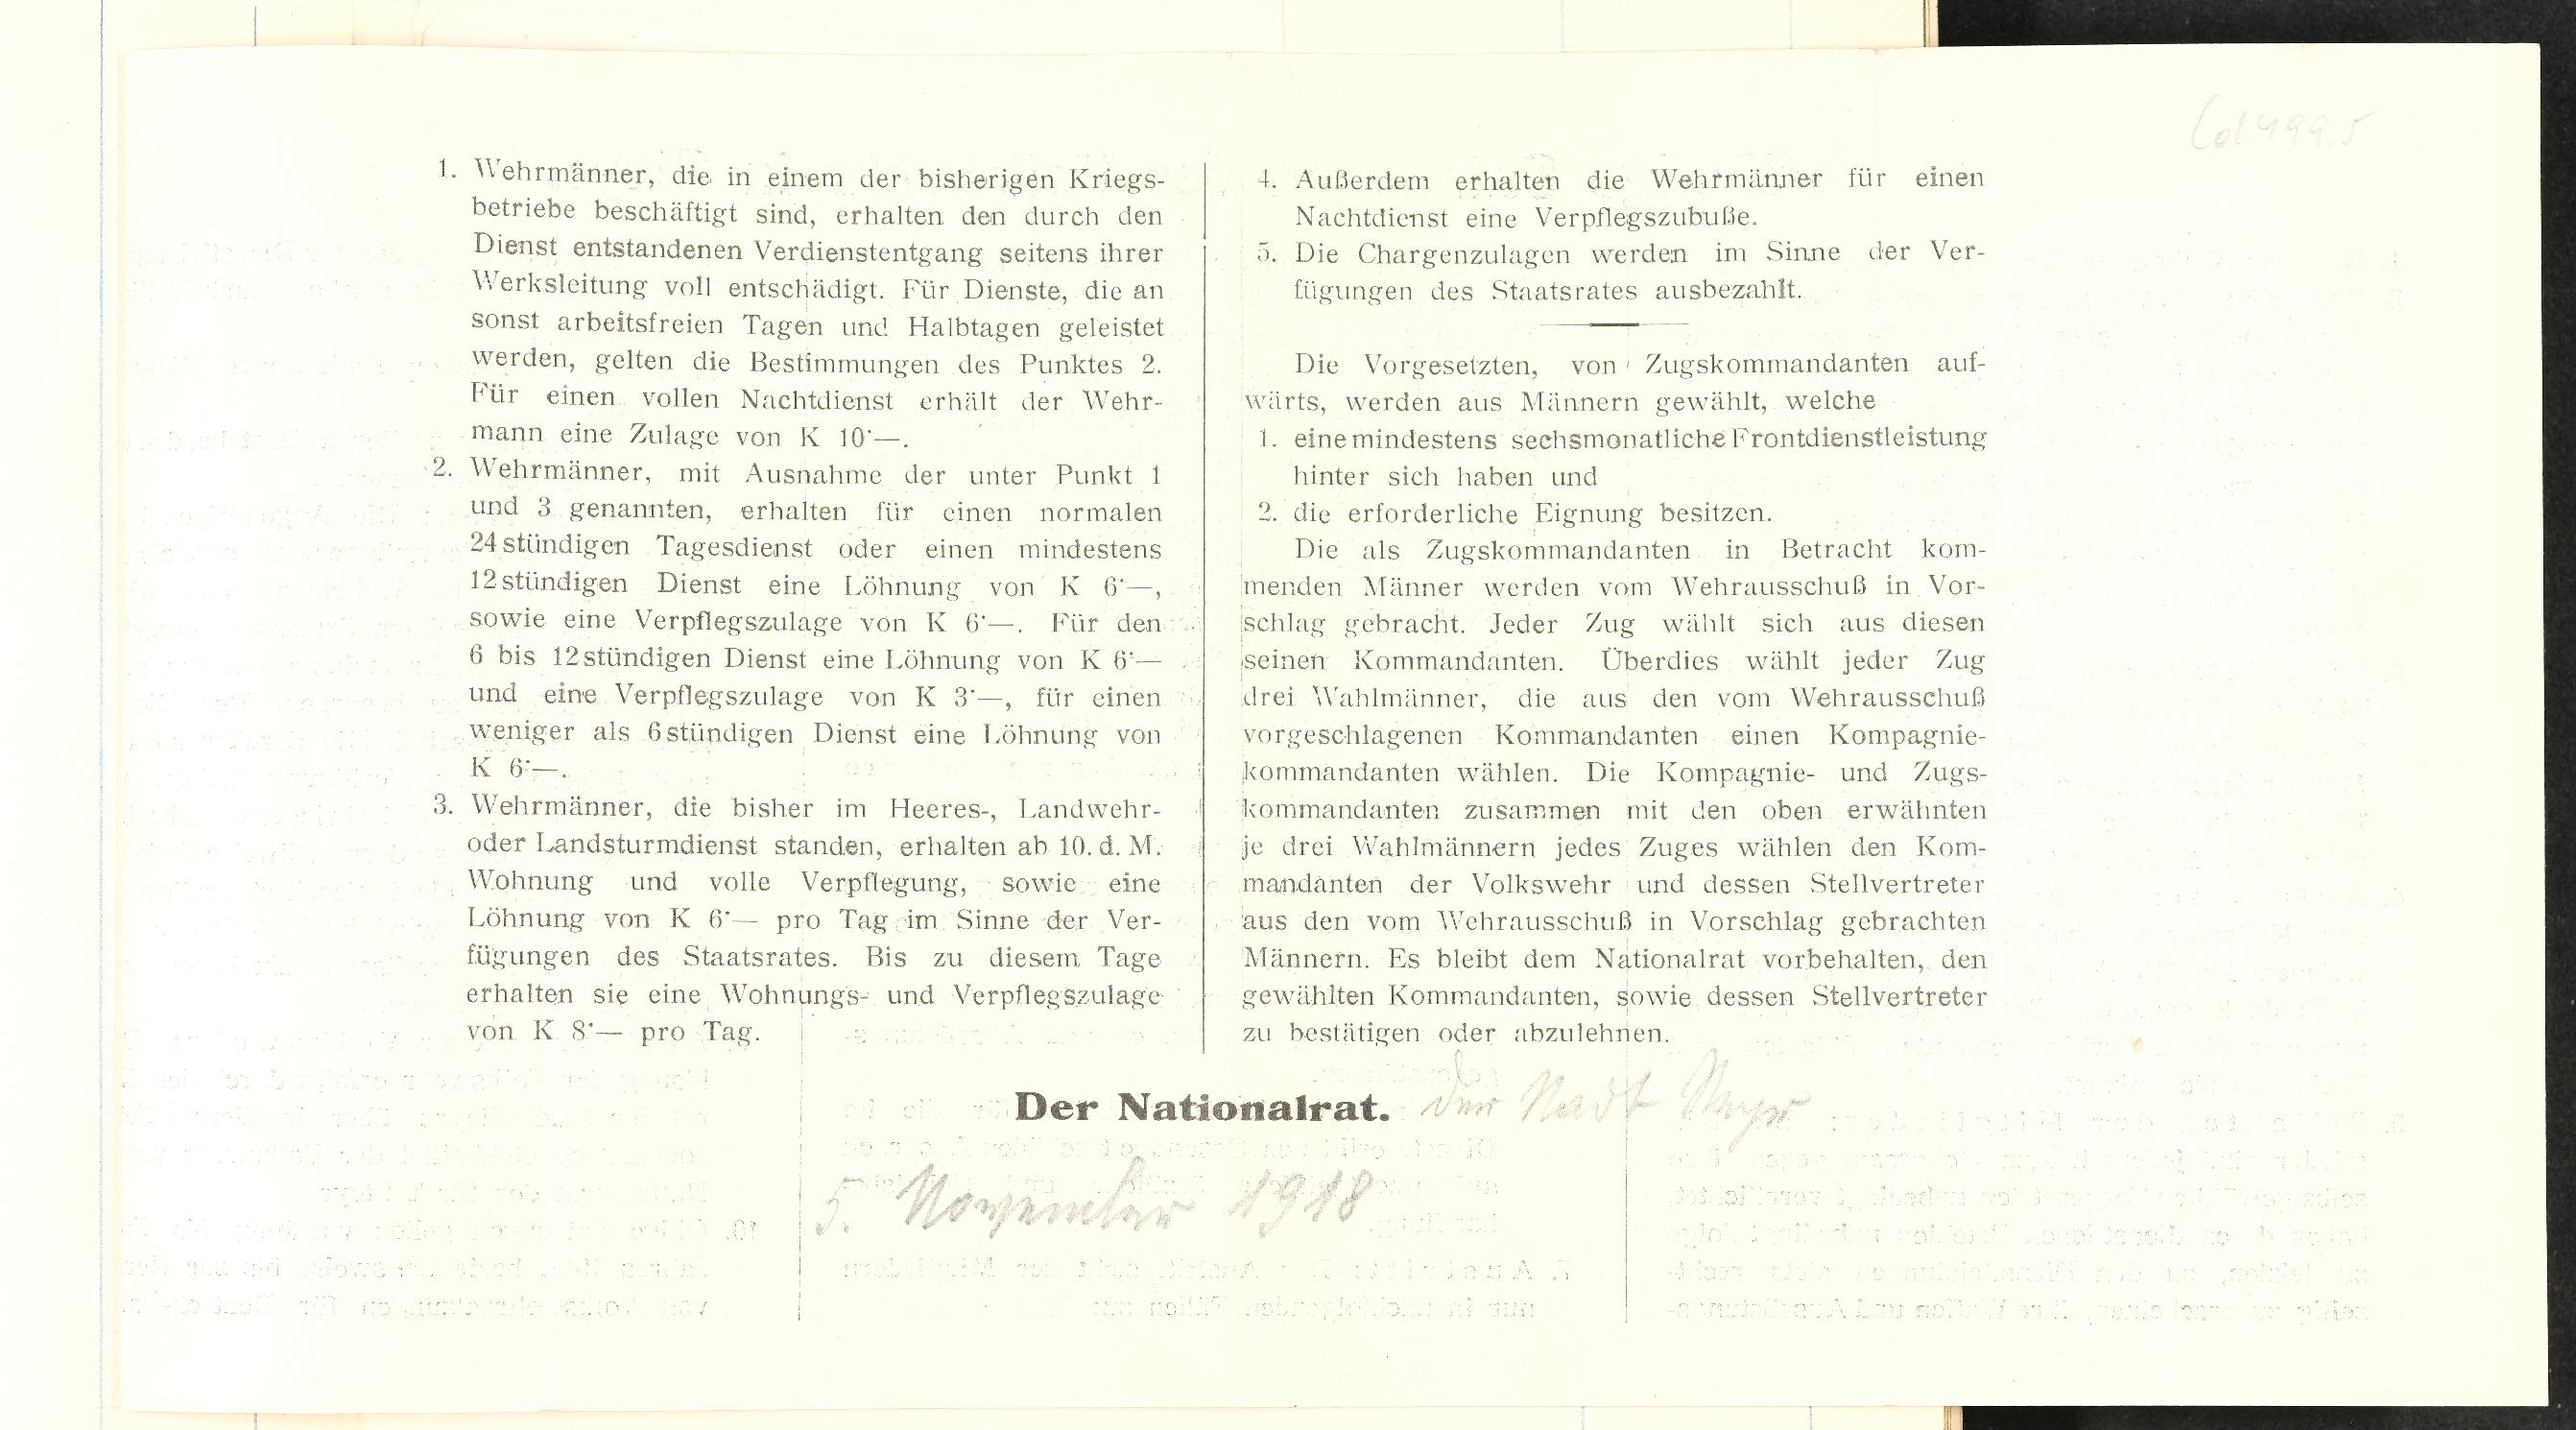 Cd 499.5
1. Wehrmänner, die in einem der bisherigen Kriegs-
betriebe beschäftigt sind, erhalten den durch den
Dienst entstandenen Verdienstentgang seitens ihrer
Werksleitung voll entschädigt. Für Dienste, die an
sonst arbeitsfreien Tagen und Halbtagen geleistet
werden, gelten die Bestimmungen des Punktes 2.
Für einen vollen Nachtdienst erhält der Wehr-
mann eine Zulage von K 10·—.
2. Wehrmänner, mit Ausnahme der unter Punkt 1
und 3 genannten, erhalten für einen normalen
24stündigen Tagesdienst oder einen mindestens
12stündigen Dienst eine Löhnung von K 6·—,
sowie eine Verpflegszulage von K 6·—. Für den
6 bis 12stündigen Dienst eine Löhnung von K 6·—
und eine Verpflegszulage von K 3·—, für einen
weniger als 6stündigen Dienst eine Löhnung von
K 6·—.
3. Wehrmänner, die bisher im Heeres-, Landwehr-
oder Landsturmdienst standen, erhalten ab 10. d. M.
Wohnung und volle Verpflegung, sowie eine
Löhnung von K 6·— pro Tag im Sinne der Ver-
fügungen des Staatsrates. Bis zu diesem Tage
erhalten sie eine Wohnungs- und Verpflegszulage
von K 8·— pro Tag.
4. Außerdem erhalten die Wehrmänner für einen
Nachtdienst eine Verpflegszubuße.
5. Die Chargenzulagen werden im Sinne der Ver-
fügungen des Staatsrates ausbezahlt.
Die Vorgesetzten, von Zugskommandanten auf-
wärts, werden aus Männern gewählt, welche
1. eine mindestens sechsmonatliche Frontdienstleistung
hinter sich haben und
2. die erforderliche Eignung besitzen.
Die als Zugskommandanten in Betracht kom-
menden Männer werden vom Wehrausschuß in Vor-
schlag gebracht. Jeder Zug wählt sich aus diesen
seinen Kommandanten. Überdies wählt jeder Zug
drei Wahlmänner, die aus den vom Wehrausschuß
vorgeschlagenen Kommandanten einen Kompagnie-
kommandanten wählen. Die Kompagnie- und Zugs-
kommandanten zusammen mit den oben erwähnten
je drei Wahlmännern jedes Zuges wählen den Kom-
mandanten der Volkswehr und dessen Stellvertreter
aus den vom Wehrausschuß in Vorschlag gebrachten
Männern. Es bleibt dem Nationalrat vorbehalten, den
gewählten Kommandanten, sowie dessen Stellvertreter
zu bestätigen oder abzulehnen.
Der Nationalrat. der Stadt Steyr
5. November 1918